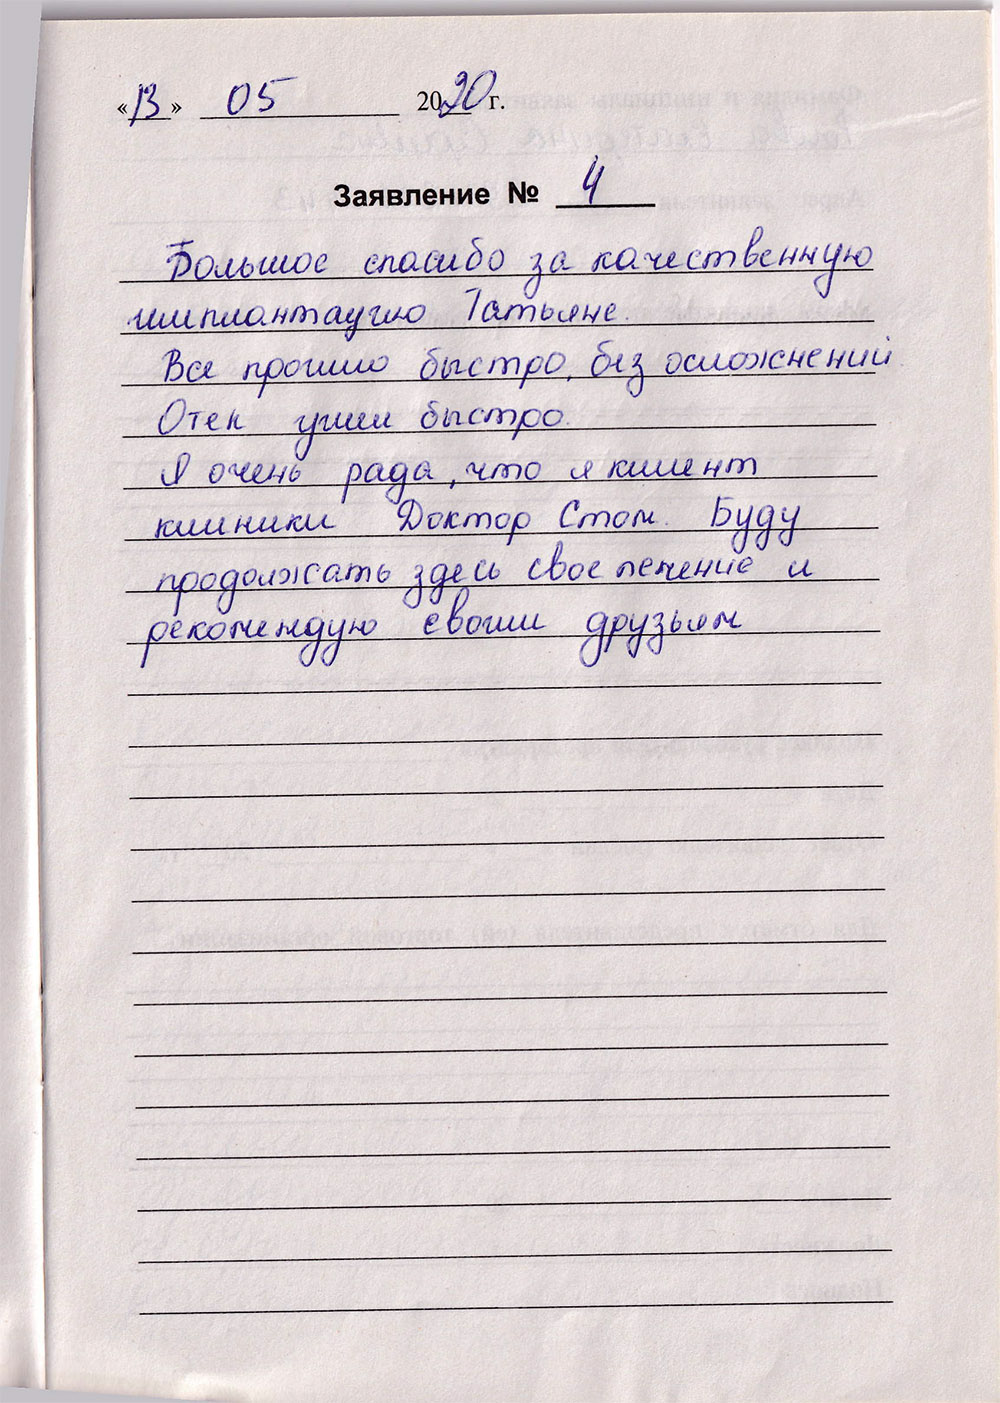 «13» 05 2020 г.
Заявление № 4
Большое спасибо за качественную
имплантацию Татьяне.
Все прошло быстро, без осложнений
Отек ушел быстро.
Я очень рада, что я клиент
клиники Доктор Стом. Буду
продолжать здесь свое лечение и
рекомендую своим друзьям